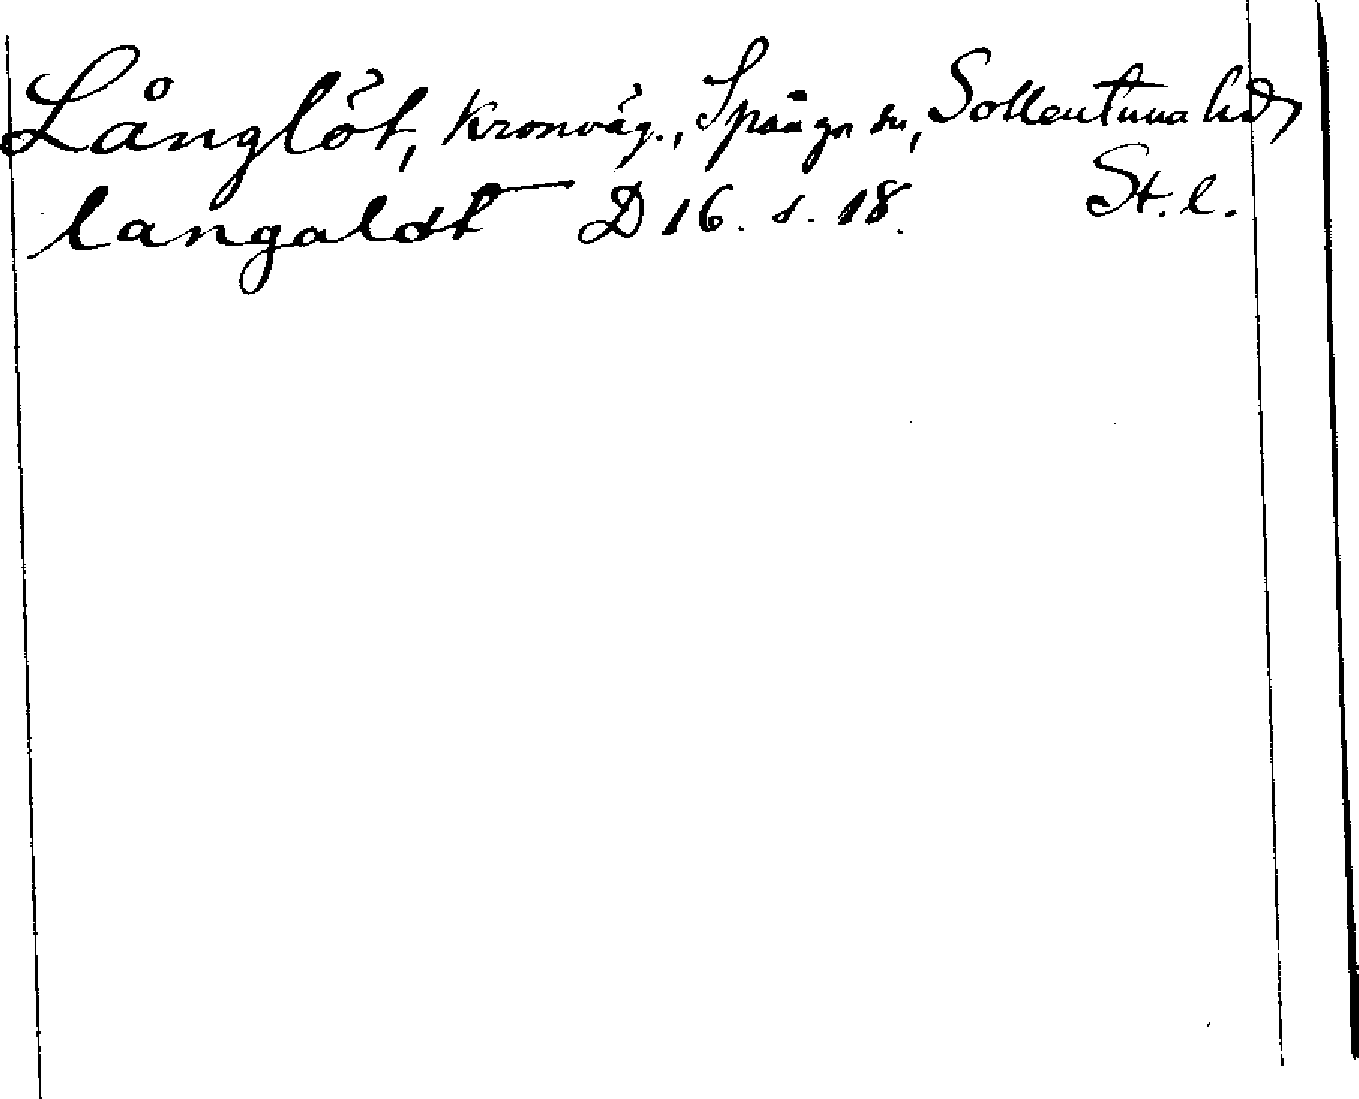 Långlöt, Kronväg., Spånga sn, Sollentuna hd,
langaløt D 16. s. 18. St. l.